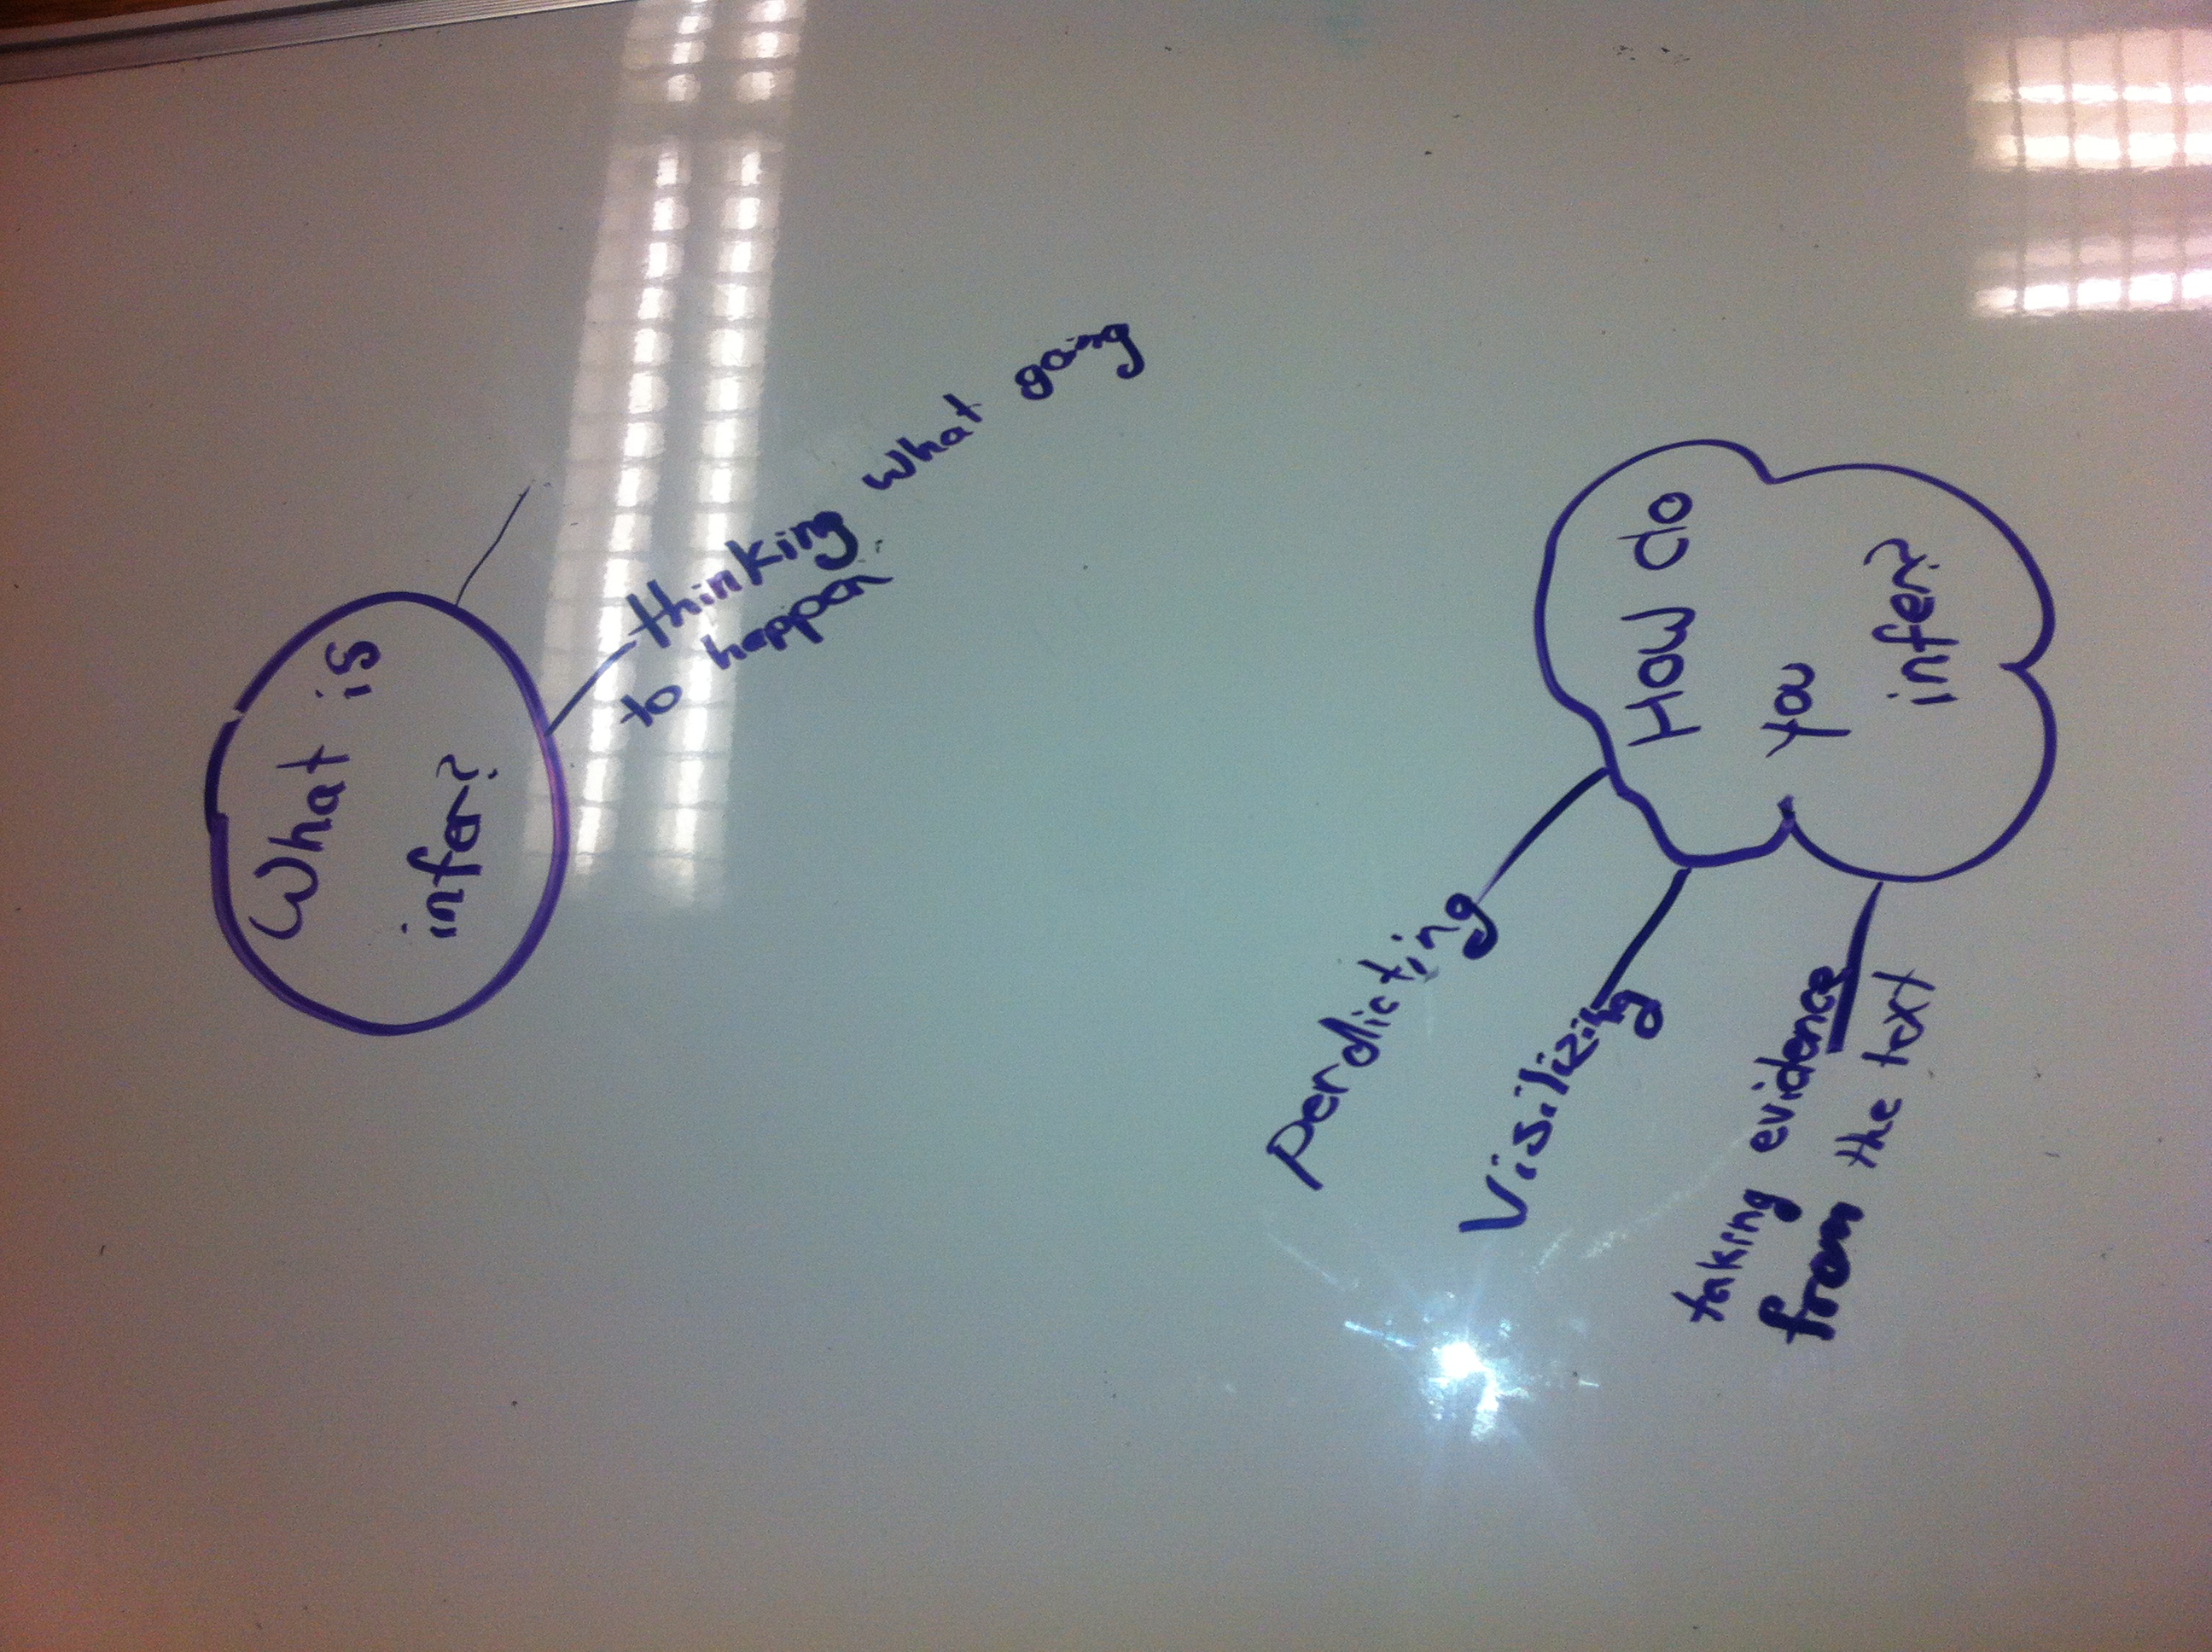 What is
infer?
thinking what going
to happen
How do
you
infer?
Perdicting
Visilizing
taking evidence
from the text